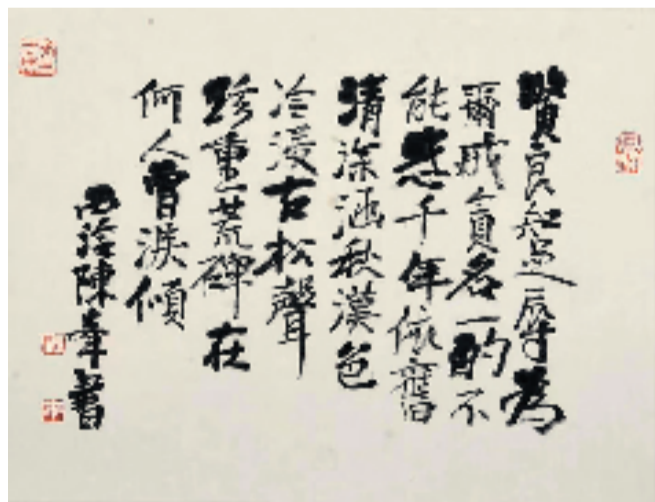 賢良知辱為
爾戒貪名一酌不
能惑千年依舊
清深涵秋漢色
冷浸古松聲
珍重荒碑在
何人曾淚傾
西泠陳書